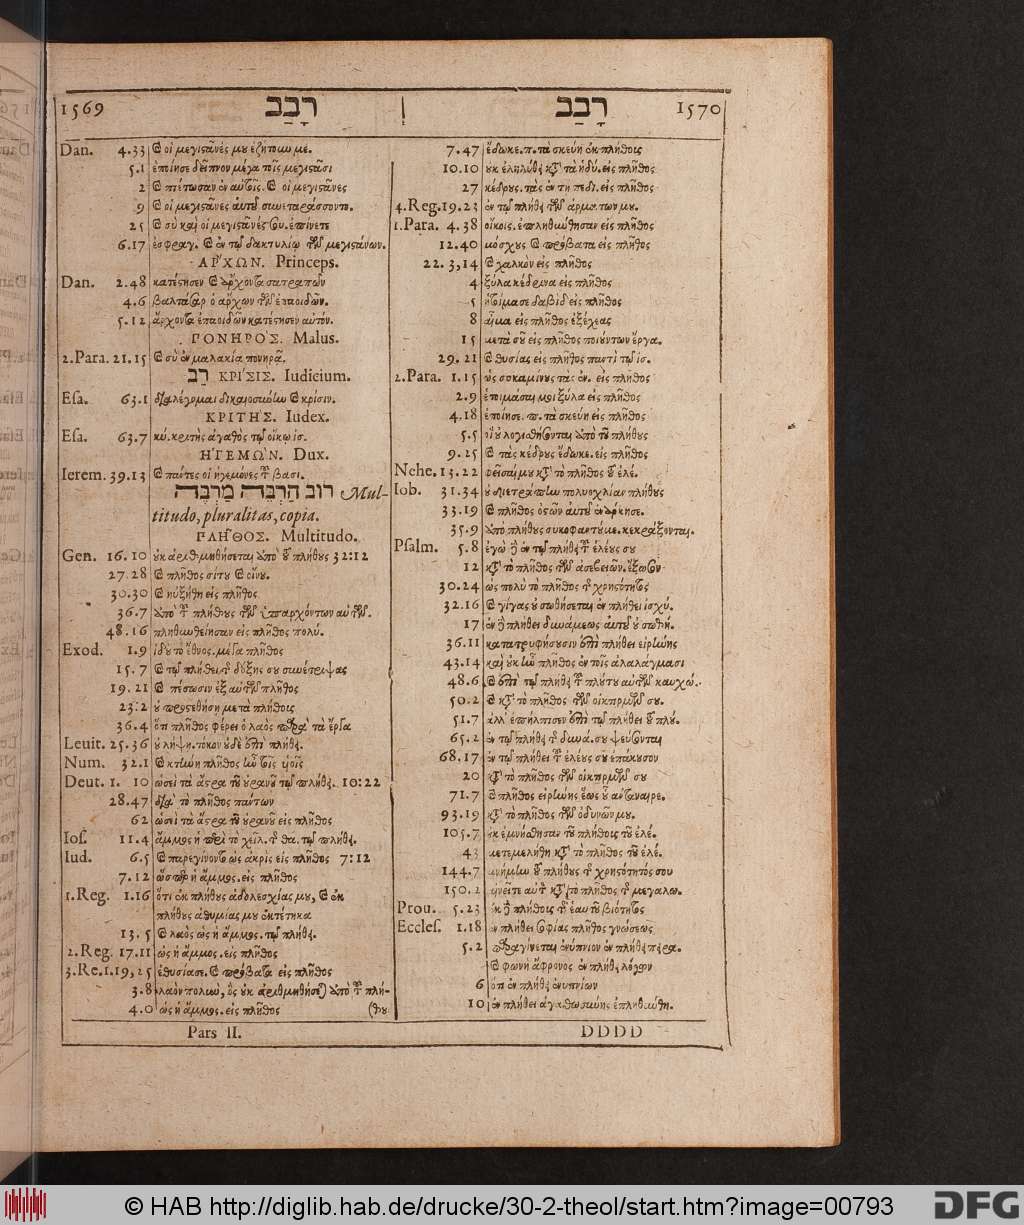 1569 רָבַב ן רָבַב 1570
Dan. 4.33 & οἱ μεγιϛᾶνές μου ἐζήτουν με.
5.1 ἐποίησε δεῖπνον μέγα τοῖς μεγιϛᾶσι
2 & πιέτωσαν ἐν αὐτοῖς. & οἱ μεγιϛᾶνες
9 & οἱ μεγιϛᾶνες αὐτοῦ συνεταράσσοντο.
25 & σὺ καὶ οἱ μεγιϛᾶνές σου. ἐπίνετε
6.17 ἐσφραγ. & ἐν τῷ δακτυλίῳ τῶν μεγιϛάνων.
ΑΡΧΩΝ. Princeps.
Dan. 2.48 κατέϛησεν & ἄρχοντα σατραπῶν
4.6 βαλτάσαρ ὁ ἄρχων τῶν ἐπαοιδῶν.
5.12 ἄρχοντα ἐπαοιδῶν κατέϛησεν αὐτόν.
ΠΟΝΗΡΟΣ. Malus.
2.Para. 21.15 & σὺ ἐν μαλακίᾳ πονηρᾷ.
רָב ΚΡΙΣΙΣ. Iudicium.
Esa. 63.1 διαλέγομαι δικαιοσύνην & κρίσιν.
ΚΡΙΤΗΣ. Iudex.
Esa. 63.7 κύ. κριτὴς ἀγαθὸς τῷ οἴκῳ ἰσ.
ΗΓΕΜΩΝ. Dux.
Ierem. 39.13 & πάντες οἱ ἡγεμόνες τοῦ βασι.
רוב הַרְבֵּה מַרְבֶּה Mul-
titudo, pluralitas, copia.
ΠΛΗΘΟΣ. Multitudo.
Gen. 16.10 οὐκ ἀριθμηθήσεται ὑπὸ τοῦ πλήθους 32:12
27.28 & πλῆθος σίτου & οἴνου.
30.30 & ηὐξήθη εἰς πλῆθος
36.7 ὑπὸ τοῦ πλήθους τῶν ὑπαρχόντων αὐτῶν.
48.16 πληθυνθείησαν εἰς πλῆθος πολύ.
Exod. 1.9 ἰδοὺ τὸ ἔθνος. μέγα πλῆθος
15.7 & τῷ πλήθει τῆς δόξης σου συνέτριψας
19.21 & πέσωσιν ἐξ αὐτῶν πλῆθος
23:2 οὐ προςεθήσῃ μετὰ πλήθους
36.4 ὅτι πλῆθος φέρει ὁ λαὸς παρὰ τὰ ἔργα
Leuit. 25.36 οὐ λήψῃ. τόκον οὐδὲ ἐπὶ πλήθει.
Num. 32.1 & κτήνη πλῆθος ἦν τοῖς υἱοῖς
Deut. 1. 10 ὡσεὶ τὰ ἄϛρα τοῦ οὐρανοῦ τῷ πλήθει. 10:22
28.47 διὰ τὸ πλῆθος πάντων
62 ὡσεὶ τὰ ἄϛρα τοῦ οὐρανοῦ εἰς πλῆθος
Ios. 11.4 ἄμμος ἡ παρὰ τὸ χεῖλ. τῆς θα. τῷ πλήθει.
Iud. 6.5 & παρεγίνοντο ὡς ἀκρὶς εἰς πλῆθος 7:12
7.12 ὥσπερ ἡ ἄμμος. εἰς πλῆθος
1.Reg. 1.16 ὅτι ἐκ πλήθους ἀδολεσχίας μου, & ἐκ
πλήθους ἀθυμίας μου ἐκτέτηκα
13.5 & λαὸς ὡς ἡ ἄμμος. τῷ πλήθει.
2.Reg. 17.11 ὡς ἡ ἄμμος. εἰς πλῆθος
3.Re. 1.19,25 ἐθυσίασε. & πρόβατα εἰς πλῆθος
3.8 λαὸν πολὺν, ὃς οὐκ ἀριθμηθήσεται ὑπὸ τοῦ πλή-
4.0 ὡς ἡ ἄμμος. εἰς πλῆθος (θου
Pars II.
7.47 ἔδωκε. π. τὰ σκεύη ἐκ πλήθους
10.10 οὐκ ἐληλύθει κατὰ τὰ ἡδύ. εἰς πλῆθος
27 κέδρους. τὰς ἐν τῇ πεδι. εἰς πλῆθος
4.Reg. 19.23 ἐν τῷ πλήθει τῶν ἁρμάτων μου.
1.Para. 4.38 οἴκοις. ἐπληθύνθησαν εἰς πλῆθος
12.40 μόσχους & πρόβατα εἰς πλῆθος
22. 3,14 & χαλκὸν εἰς πλῆθος
4 ξύλα κέδρινα εἰς πλῆθος
5 ἡτοίμασε δαβὶδ εἰς πλῆθος
8 αἷμα εἰς πλῆθος ἐξέχεας
15 μετὰ σοῦ εἰς πλῆθος ποιούντων ἔργα.
29.21 & θυσίας εἰς πλῆθος παντὶ τῷ ἰσ.
2.Para. 1.15 ὡς συκαμίνους τὰς ἐν. εἰς πλῆθος
2.9 ἑτοιμάσαι μοι ξύλα εἰς πλῆθος
4.18 ἐποίησε. π. τὰ σκεύη εἰς πλῆθος
5.5 οὐ λογισθήσονται ὑπὸ τοῦ πλήθους
9.25 & τὰς κέδρους ἔδωκε. εἰς πλῆθος
Nehe. 13.22 φεῖσαί μου κατὰ τὸ πλῆθος τοῦ ἐλέ.
Iob. 31.34 οὐ διετράπην πολυοχλίαν πλήθους
33.19 & πλῆθος ὀϛῶν αὐτοῦ ἐνάρκησε.
35.9 ὑπὸ πλήθους συκοφαντούμε. κεκράξονται.
Psalm. 5.8 ἐγὼ δὲ ἐν τῷ πλήθει τοῦ ἐλέους σου
12 κατὰ τὸ πλῆθος τῶν ἀσεβειῶν. ἔξωσον
30.24 ὡς πολὺ τὸ πλῆθος τῆς χρηϛότητος
32.16 & γίγας οὐ σωθήσεται ἐν πλήθει ἰσχύ.
17 ἐν δὲ πλήθει δυνάμεως αὐτοῦ οὐ σωθή.
36.11 κατατρυφήσουσιν ἐπὶ πλήθει εἰρήνης
43.14 καὶ οὐκ ἦν πλῆθος ἐν τοῖς ἀλαλάγμασι
48.6 & ἐπὶ τῷ πλήθει τοῦ πλούτου αὐτῶν καυχώ.
50.2 & κατὰ τὸ πλῆθος τῶν οἰκτιρμῶν σου.
51.7 ἀλλ' ἐπήλπισεν ἐπὶ τῷ πλήθει τοῦ πλού.
65.2 ἐν τῷ πλήθει τῆς δυνά. σου ψεύσονται
68.17 ἐν τῷ πλήθει τοῦ ἐλέους σου ἐπάκουσον
20 κατὰ τὸ πλῆθος τῶν οἰκτιρμῶν σου
71.7 & πλῆθος εἰρήνης ἕως οὗ ἀνταναιρε.
93.19 κατὰ τὸ πλῆθος τῶν ὀδυνῶν μου.
105.7 οὐκ ἐμνήσθησαν τοῦ πλήθους τοῦ ἐλέ.
43 μετεμελήθη κατὰ τὸ πλῆθος τοῦ ἐλέ.
144.7 μνήμην τοῦ πλήθους τῆς χρηϛότητός σου
150.2 αἰνεῖτε αὐτὸν κατὰ τὸ πλῆθος τῆς μεγαλω.
Prou. 5.23 ἐκ δὲ πλήθους τῆς ἑαυτοῦ βιότητος
Eccles. 1.18 ἐν πλήθει σοφίας πλῆθος γνώσεως
5.2 παραγίνεται ἐνύπνιον ἐν πλήθει πειρα.
& φωνὴ ἄφρονος ἐν πλήθει λόγων
6 ὅτι ἐν πλήθει ἐνυπνίων
10 ἐν πλήθει ἀγαθωσύνης ἐπληθύνθη.
DDDD
© HAB http://diglib.hab.de/drucke/30-2-theol/start.htm?image=00793
DFG